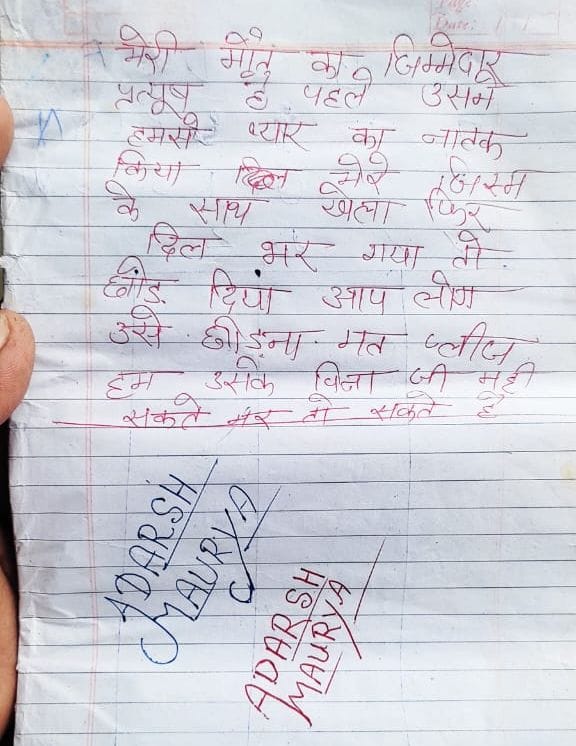 Page:
Date: / /
मेरी मौत का जिम्मेदार
प्रत्यूष है पहले उसने
हमसे प्यार का नातक
किया मेरे जिस्म
के साथ खेला फिर
दिल भर गया तो
छोड़ दिया आप लोग
उसे छोड़ना मत प्लीज
हम उसके बिना जी नही
सकते मर तो सकते है
ADARSH
MAURYA
ADARSH
MAURYA